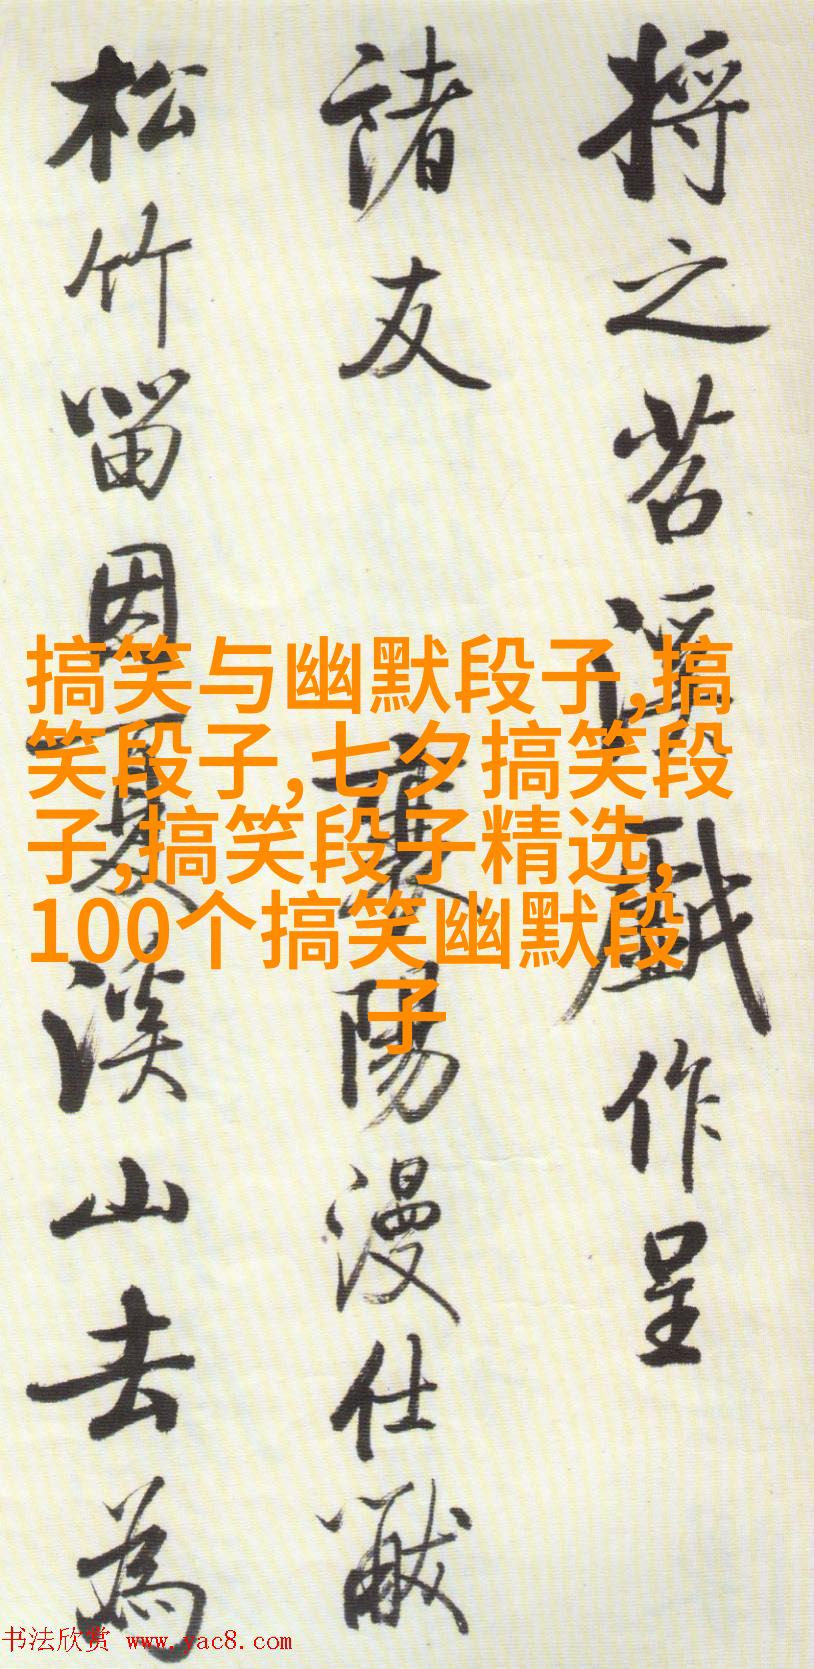 将之苕溪戲作呈
諸友
襄陽漫仕黻
松竹留因夏溪山去為
搞笑与幽默段子,搞
笑段子,七夕搞笑段
子,搞笑段子精选,
100个搞笑幽默段
子
书法欣赏 www.yac8.com